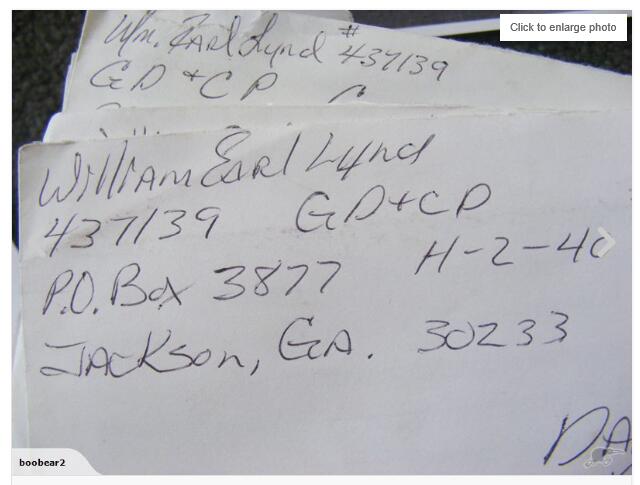 Click to enlarge photo
Wm. Earl Lynd # 437139
GD + CP
William Earl Lynd
437139 GD + CP
P.O. Box 3877 H-2-40
Jackson, GA. 30233
DA
boobear2